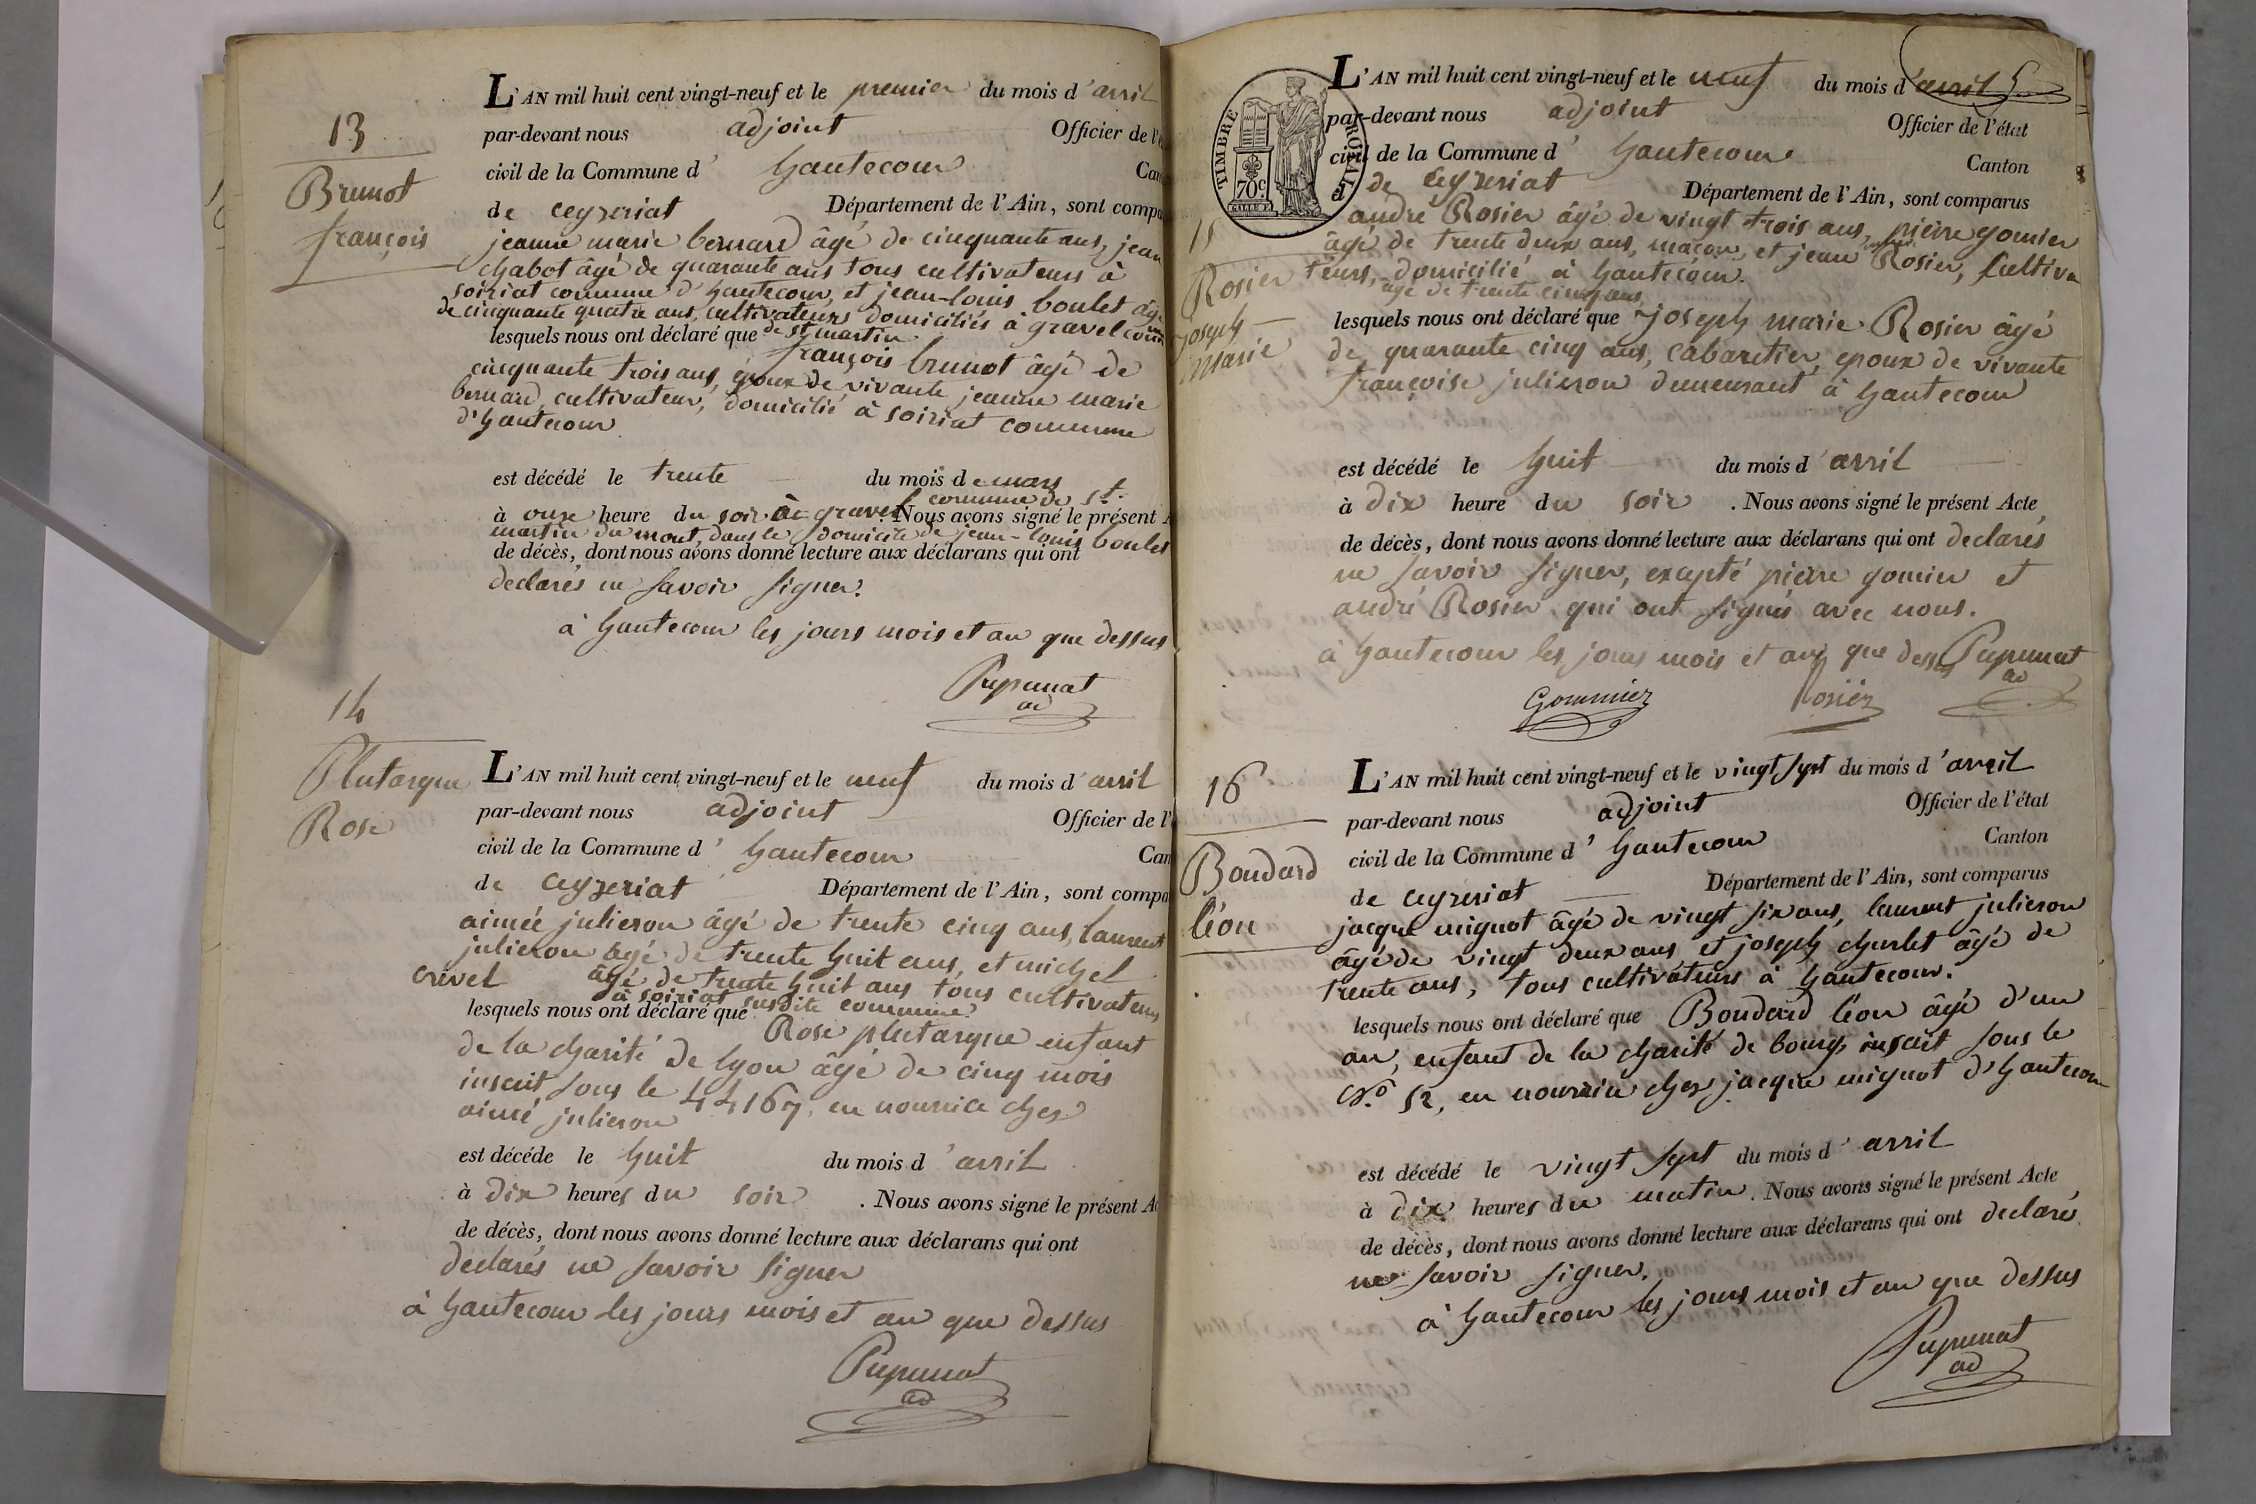 13
Brunot
françois
L'AN mil huit cent vingt-neuf et le premier du mois d'avril
par-devant nous adjoint Officier de l'
civil de la Commune d' hautecour
de ceyzeriat Département de l'Ain, sont compa
jeanne marie bernard âgé de cinquante ans, jean
chabot âgé de quarante ans tous cultivateurs à
soiriat commune d'hautecour, et jean-louis boulet âgé
de cinquante quatre ans, cultivateurs domiciliés à gravel
lesquels nous ont déclaré que de st martin
françois brunot âgé de
cinquante trois ans, époux de vivante jeanne marie
bernard, cultivateur, domicilié à soiriat commune
d'hautecour
est décédé le trente du mois de mars
à onze heure du soir à gravel commune de st.
. Nous avons signé le présent
martin du mont, dans le domicile de jean-louis boulet
de décès, dont nous avons donné lecture aux déclarans qui ont
declarés ne savoir signer.
à hautecour les jours mois et an que dessus
Pupunat
ad
14
Plutarque
Rose
L'AN mil huit cent vingt-neuf et le neuf du mois d'avril
par-devant nous adjoint Officier de l'
civil de la Commune d' hautecour Can
de ceyzeriat Département de l'Ain, sont compa
aimée julieron âgé de trente cinq ans, laurent
julieron âgé de trente huit ans, et michel
crevel âgé de trente huit ans tous cultivateurs
à soiriat susdite commune
lesquels nous ont déclaré que
Rose plutarque enfant
de la charité de lyon âgé de cinq mois
inscrit sous le 44167, en nourrice chez
aimé julieron
est décéde le huit du mois d'avril
à dix heures du soir . Nous avons signé le présent A
de décès, dont nous avons donné lecture aux déclarans qui ont
declarés ne savoir signer
à hautecour les jours mois et an que dessus
Pupunat
ad
TIMBRE ROYAL
70c
15
Rosier
joseph
marie
L'AN mil huit cent vingt-neuf et le neuf du mois d'avril
par-devant nous adjoint Officier de l'état
civil de la Commune d' hautecour Canton
de ceyzeriat Département de l'Ain, sont comparus
andré Rosier âgé de vingt trois ans, pierre gomier
âgé de trente deux ans, maçon, et jean Rosier, cultiva
teurs, domicilié à hautecour.
âgé de trente cinq ans
lesquels nous ont déclaré que joseph marie Rosier âgé
de quarante cinq ans, cabaretier, epoux de vivante
françoise julieron demeurant à hautecour
est décédé le huit du mois d'avril
à dix heure du soir . Nous avons signé le présent Acte
de décès, dont nous avons donné lecture aux déclarans qui ont declarés
ne savoir signer, excepté pierre gomier et
andré Rosier qui ont signés avec nous.
à hautecour les jours mois et an que dessus Pupunat
ad
Gommier Rosier
16
Boudard
léon
L'AN mil huit cent vingt-neuf et le vingt sept du mois d'avril
par-devant nous adjoint Officier de l'état
civil de la Commune d' hautecour Canton
de ceyzeriat Département de l'Ain, sont comparus
jacque mignot âgé de vingt six ans, laurent julieron
âgé de vingt deux ans et joseph charlet âgé de
trente ans, tous cultivateurs à hautecour.
lesquels nous ont déclaré que Boudard léon âgé d'un
an, enfant de la charité de bourg, inscrit sous le
N.o 52, en nourrice chez jacque mignot d'hautecour
est décédé le vingt sept du mois d'avril
à dix heures du matin. Nous avons signé le présent Acte
de décès, dont nous avons donné lecture aux déclarans qui ont declarés
ne savoir signer.
à hautecour les jours mois et an que dessus
Pupunat
ad